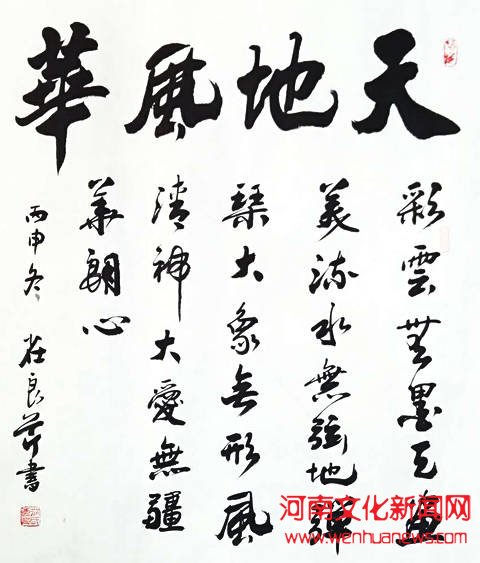 天地風華
彩雲無墨天畫
美流水無弦地彈
琴大象無形風
清神大愛無疆
華朗心
丙申冬 莊良書
河南文化新闻网
www.wenhuanews.cn